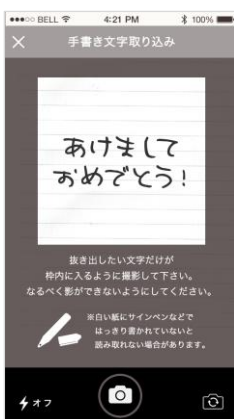 ●●●○○ BELL 4:21 PM 100%
× 手書き文字取り込み
あけまして
おめでとう!
抜き出したい文字だけが
枠内に入るように撮影して下さい。
なるべく影ができないようにしてください。
※白い紙にサインペンなどで
はっきり書かれていないと
読み取れない場合があります。
オフ